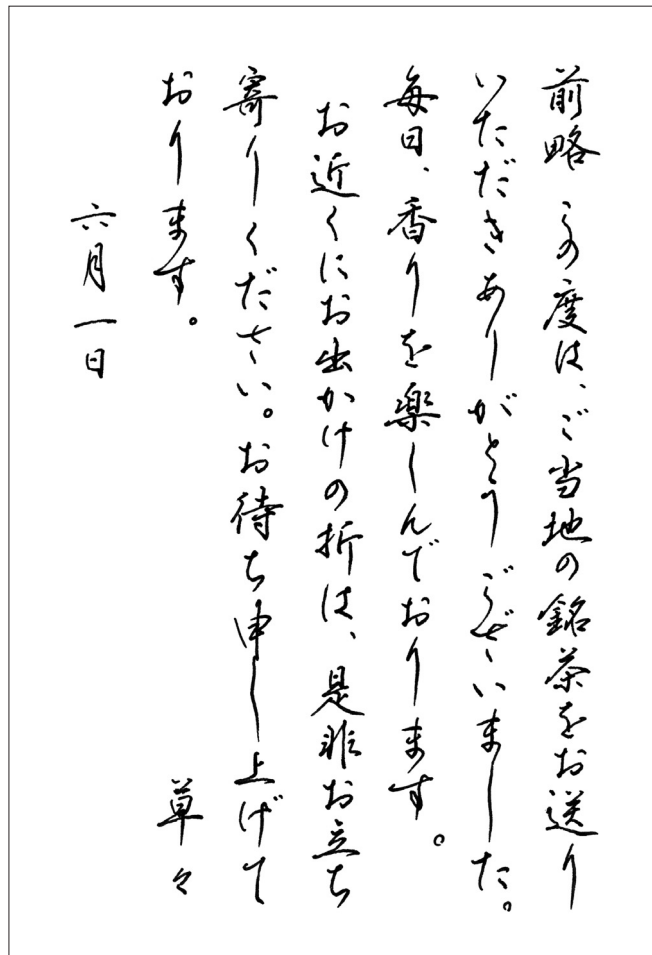 前略 この度は、ご当地の銘茶をお送り
いただきありがとうございました。
毎日、香りを楽しんでおります。
お近くにお出かけの折は、是非お立ち
寄りください。お待ち申し上げて
おります。 草々
六月一日